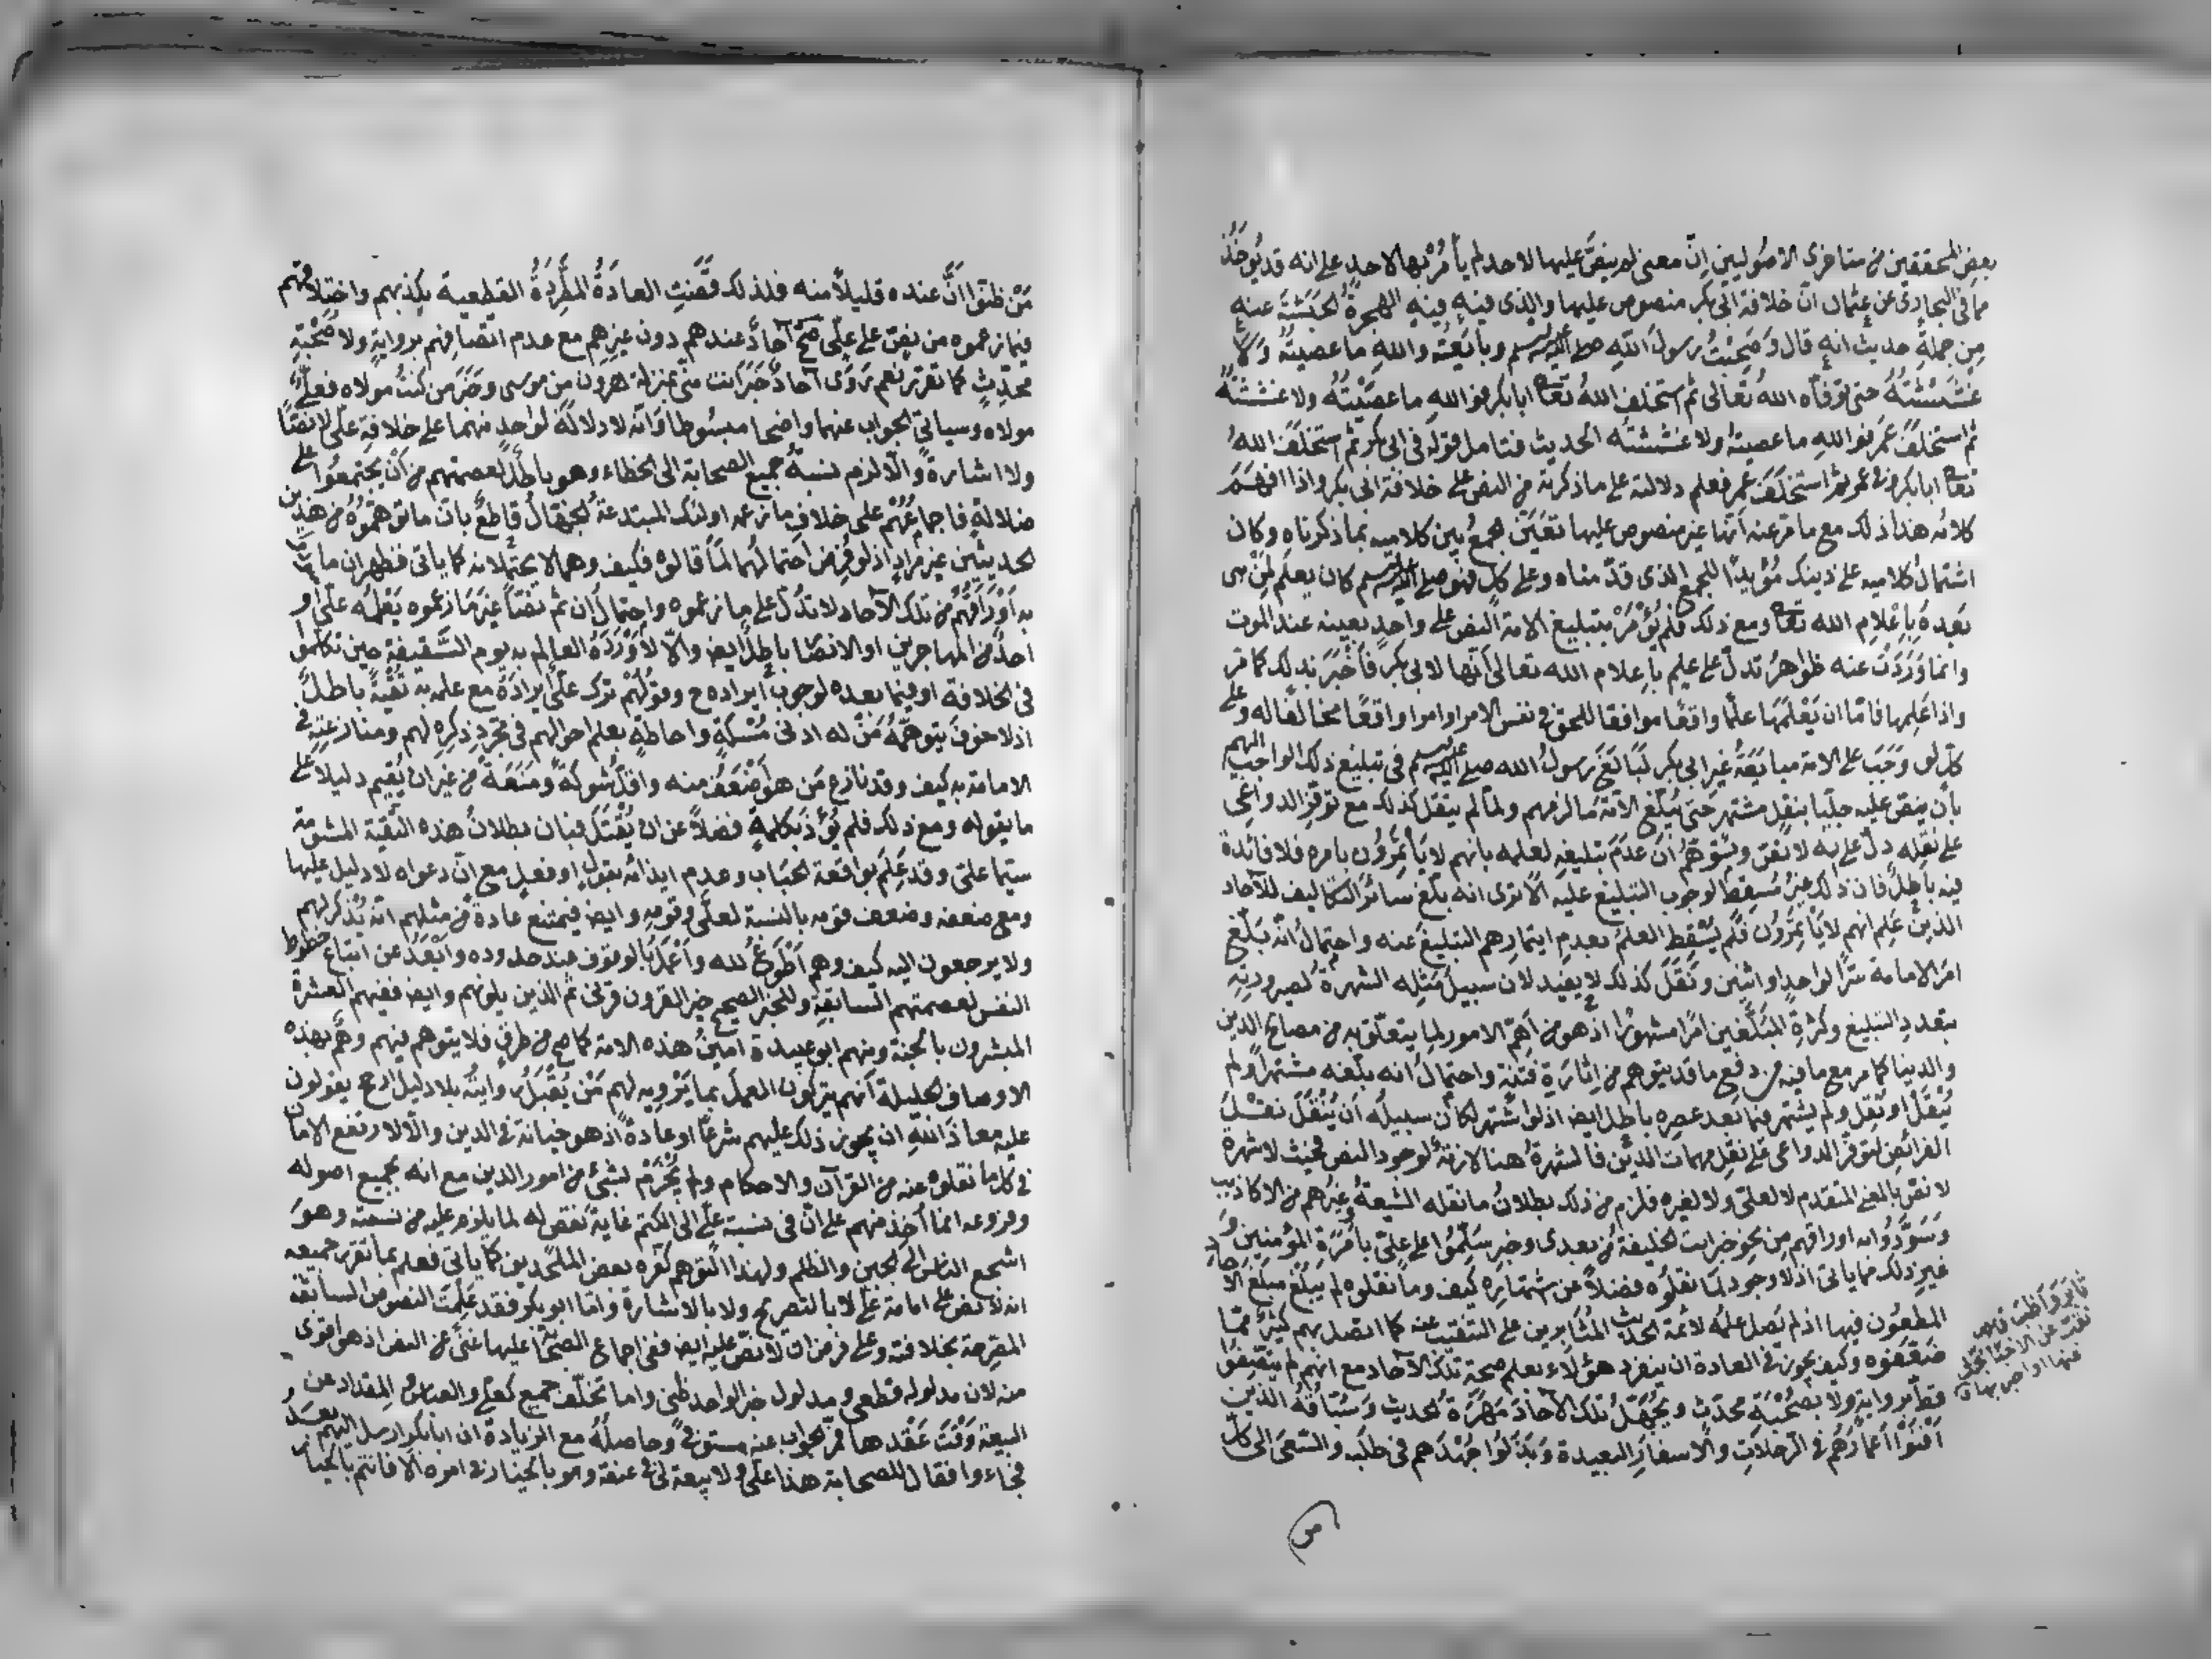 بعض المحققين من متاخرى الاصوليين انّ معنى لم ينصّ عليها لاحد لم يأمُرْ بها لاحدٍ على انه قد يُوخَذُ
مما فى البخارى عن عثمان انّ خلافة ابى بكر منصوص عليها والذى فيهِ فيه الهجرةُ الحبشةَ عنه
من جملةِ حديث انه قال وَصَحِبْتُ رسولَ اللهِ صلى الله عليه وسلم وبايَعْتُه واللهِ ما عصيتُهُ ولا
غَشَشْتُهُ حتى توفّاه اللهُ تعالى ثم استخلف اللهُ تعا ابابكر فوَاللهِ ما عصيْتُهُ ولا غششتُهُ
ثم استخلفَ عمر فوَاللهِ ما عصيتهُ ولا غششتُه الحديث فتامل قوله فى ابى بكر ثم استخلفَ اللهُ
تعا ابابكر وفى عمر ثم استخلفَ عمر فعلم دلالته على ما ذكرته من النص على خلافة ابى بكر واذا افهم
كلامُه هذا ذلك مع ما مرّ عنه انّها غير منصوص عليها تعيّن الجمعُ بين كلاميه بما ذكرناه وكان
اشتمالُ كلاميه على ذينك مُؤيدًا للجمع الذى قدّمناه وعلى كلٍ فهو صلى الله عليه وسلم كان يعلم لمن هى
بَعدهُ بإعْلامِ الله تعا ومع ذلك فلم يُؤْمَرْ بتبليغ الامة النص على واحدٍ بعينه عند الموت
وانما وَرَدَتْ عنه ظواهرُ تدلّ على علمٍ بإعلام الله تعالى انّها لابى بكر فأخبَر بذلك كما مر
واذا عَلِمها فامّا ان يَعْلمَها علمًا واقعًا موافقا للحق فى نفس الامر او امرا واقعًا مخالفا له وعلى
كلٍ لو وَجَبَ على الامة مبايعةُ غير ابى بكر لبَالغَ رسولُ الله صلى الله عليه وسلم فى تبليغ ذلك الواجب اليهم
بأن ينص عليه جليّا بنقلٍ مشتهر حتى يُبلّغ الامّةَ ما لزمهم ولمّا لم ينقل كذلك مع توفّر الدواعى
على نقله دلّ على انه لا نصّ وتوهّمُ انّ عدمَ تبليغهِ لعلمه بانهم لا يَأتَمِرُون بامره فلا فائدة
فيه باطلٌ فان ذلك غيرُ مُسْقِطٍ لوجوب التبليغ عليه الا ترى انه بلّغ سائرَ التكاليف للآحاد
الذينَ عَلِم انهم لا يَأتمِرُون فلم يُسْقِط العلمُ بعدمِ ايتمارهم التبليغَ عنه واحتمالُ انّه بلّغ
امر الامامة سرًّا لواحدٍ واثنين ونُقلَ كذلك لا يفيد لان سبيلَ مثلِه الشهرةُ لصيرورتِهِ
بتعددِ التبليغِ وكثرةِ المُبَلَّغين امرًا مشهورًا اذ هو من اهمّ الامور لما يتعلّق به من مصالح الدين
والدنيا كما مر مع ما فيه من دفع ما قد يتوهم من اثارة فتنةٍ واحتمالُ انه بلّغه مشتهرًا ولم
يُنْقَلْ او نُقِل ولم يشتهر فيما بَعد عصرِه باطل ايض اذ لو اشتهر لكان سبيله أن يُنْقَلَ نقلَ
الفرائض لتوفّر الدواعى على نقلِ مهمات الدين فالشهرةُ هنا لازمةٌ لوجود النص فحيث لا شهرةَ
لا نصّ بالمعنى المتقدم لا لعلىّ ولا لغيره فلزم من ذلك بطلانُ ما نقله الشيعةُ وغيرُهم من الاكاذيب
وسَوَّدُوا به اوراقهم من نحو خبر انت الخليفة من بعدى وخبر سَلِّمُوا على علىّ بامْرَةِ المؤمنين و
غيرِ ذلك مما ياتى اذ لا وجود لما نقلُوه فضلًا عن اشتهارِه كيف وما نقلوه لم يَبلُغ مبلغَ الآحاد
المطعُون فيها اذ لم يَصل علمُه لائمة الحديث المثابرين على التنقيب عنه كما اتصل بهم كثيرٌ مما
ضعّفوه وكيف يجوز فى العادة ان ينفرد هؤلاء بعلم صحة تلك الآحاد مع انهم لم يتّصِفوا
قطّ بروايةٍ ولا بصُحْبَةِ محدّث ويَجهَلُ تلك الآحادَ مَهَرَةُ الحديث وسُبّاقُهُ الذين
افنَوْا أعمارَهُم فى الرّحلاتِ والاسفارِ البعيدة وبَذلُوا جُهْدَهم فى طلبه والسّعى الى كلّ
ثابر واظب قاموس
نقب عن الاخبار بحث
عنها او اخبر بها ق
مَنْ ظنّوا أنَّ عنده قليلاً منه فلذلك قَضَتِ العادَةُ المطّردةُ القطعية بكذبهم واختلاقهم
فيما زعموه من نصّ على علىّ صحّ آحادًا عندهم دون غيرهم مع عدم اتّصافهم بروايةٍ ولا صُحْبَةِ
محدّثٍ كما تقرر نعم رَوَى آحادًا خبَر انت منّى بمنزلة هرون من موسى وخبَر من كنتُ مولاه فعلىٌّ
مولاه وسياتى الجواب عنهما واضحا مبسُوطا وَانّه لا دلالَةَ لواحدٍ منهما على خلافةِ علىّ لا نصًّا
ولا اشارةً والّا لزم نسبةُ جميع الصحابة الى الخطاء وهو باطلٌ لعصمتهم من أن يجتمعوا على
ضلالةٍ فاجماعُهُم على خلافِ ما زعمه اولئك المبتدعةُ الجهّالُ قاطعٌ بانّ ما توهّمُوُهُ من هذين
الحديثين غير مرادٍ اذ لو فُرِض احتمالُهما لمَا قالوه فكيف وهما لا يحتمِلانه كما ياتى فظهر ان ما
به أوْرَاقَهُم من تلك الآحاد لا تدُلّ على ما زعموه واحتمالُ ان ثم نصًّا غيرَ مَا زعموه يَعْلمُه علىّ او
احدٌ من المهاجرين او الانصا باطلٌ ايض والّا لأوْرَدَهُ العالِم به يوم السَّقيفةِ حين تكلّموا
فى الخلافة او فيما بعده لوجوبُ ايراده ح وقولُهم ترك علىٌّ ايرادَهُ مع علمه به تَقِيَّةً باطلٌ
اذ لا خوفَ يتوهّمُهُ مَنْ له ادنى مُسْكةٍ واحاطةٍ بعلم احوالهم فى مجرّدِ ذكرِه لهم ومنازعتِه فى
الامامة به كيف وقد نازع مَن هو أضْعَفُ منه واقلّ شوكةً ومَنَعَةً من غير ان يُقيم دليلا على
ما يقوله ومع ذلك فلم يُؤْذَ بكلمةٍ فضلاً عن ان يُقْتَلَ فبان بطلانُ هذه التّقية المشؤمة
سيّما علىّ وقد عَلِمَ بواقعة الحُبَاب وعدم ايذائه بقولٍ او فعلٍ مع انّ دعواه لا دليل عليها
ومع ضعفه وضعف قومه بالنسبة لعلىّ وقومِه وايض فيمتنع عادةً من مثلهم انّه يُذكر لهم
ولا يرجعون اليه كيف وهم أطْوعُ لله وأعْمَلُ بالوقوف عند حدوده وأبْعَدُ عن اتباع حظوظ
النفس لعصمتهم السابقةِ وللخبر الصحيح خير القرون قرنى ثم الذين يلونهم وايض ففيهم العشرة
المبشرون بالجنة ومنهم ابو عبيدة امينُ هذه الامة كما صح من طرقٍ فلا يتوهم فيهم وهُم بهذه
الاوصاف الجليلة أنهم يتركون العملَ بما يَرْويه لهم مَنْ تُقْبَلُ روايتُه بلا دليل ارجح يعولون
عليه معاذَ اللهِ ان يجوز ذلك عليهم شرعًا او عادةً اذ هو خيانة فى الدين والّا لارتفع الامان
فى كل ما نقلوه عنه من القرآن والاحكام ولم يُجْزَمْ بشئ من امور الدين مع انه بجميع اصوله
وفروعه انما أُخذ منهم على انّ فى نسبة علىّ الى الكتم غايةَ نقصٍ له لما يلزم عليه من نسبته وهو
اشجع الناس الى الجبن والظلم ولهذا التوهم كفّره بعض الملحدين كما ياتى فعلم بما تقرر جميعه
انه لا نص على امامة علىّ لا بالتصريح ولا بالاشارة وامّا ابو بكر فقد عَلِمتَ النصوص السابقة
المصرحة بخلافته وعلى فرض ان لا نصّ عليه ايض ففى اجماع الصحَا عليها غنًى عن النص اذ هو اقوى
منه لان مدلوله قطعى ومدلول خبر الواحد ظنى واما تخلّف جمع كعلى والعباس والمقداد عن
البيعة وَقْتَ عَقْدها فمرّ الجواب عنه مستوفًى وحاصلُه مع الزيادة ان ابابكر ارسل اليهم بعد
فجاءوا فقال للصحابة هذا علىّ ولا بيعة لى فى عنقه وهو بالخيار فى امره الا فانتم بالخيار